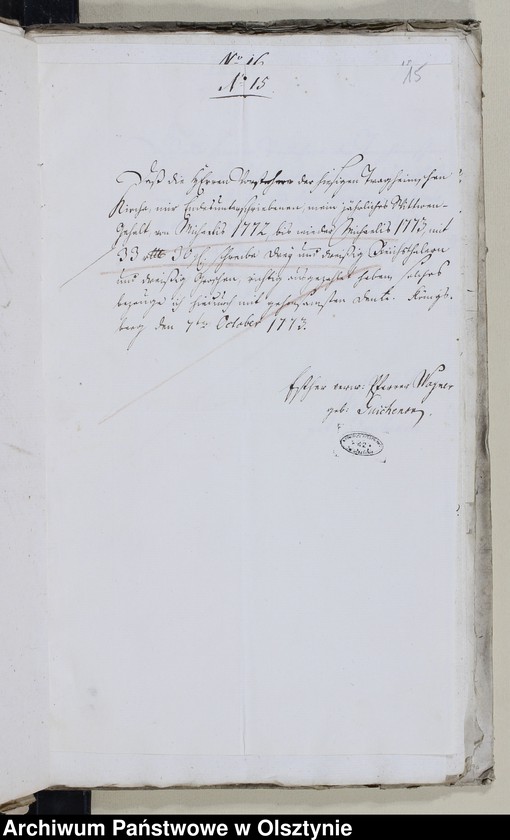 No 16
No 15
15
Daß die Herren Vorsteher der hiesigen Tragheimschen
Kirche, mir Endesunterschriebenen, mein jährliches Wittwen-
Gehalt von Michaelis 1772, bis wieder Michaelis 1773, mit
33 rthl 30 gl, schreibe drey und dreyßig Reichsthalern
und dreißig Groschen, richtig ausgezahlet haben, solches
bezeuge ich hiedurch mit gehorsamsten Danke. Königs-
berg den 7ten October 1773.
Esther verw: Pfarrer Wagner
geb:
Archiwum Państwowe w Olsztynie